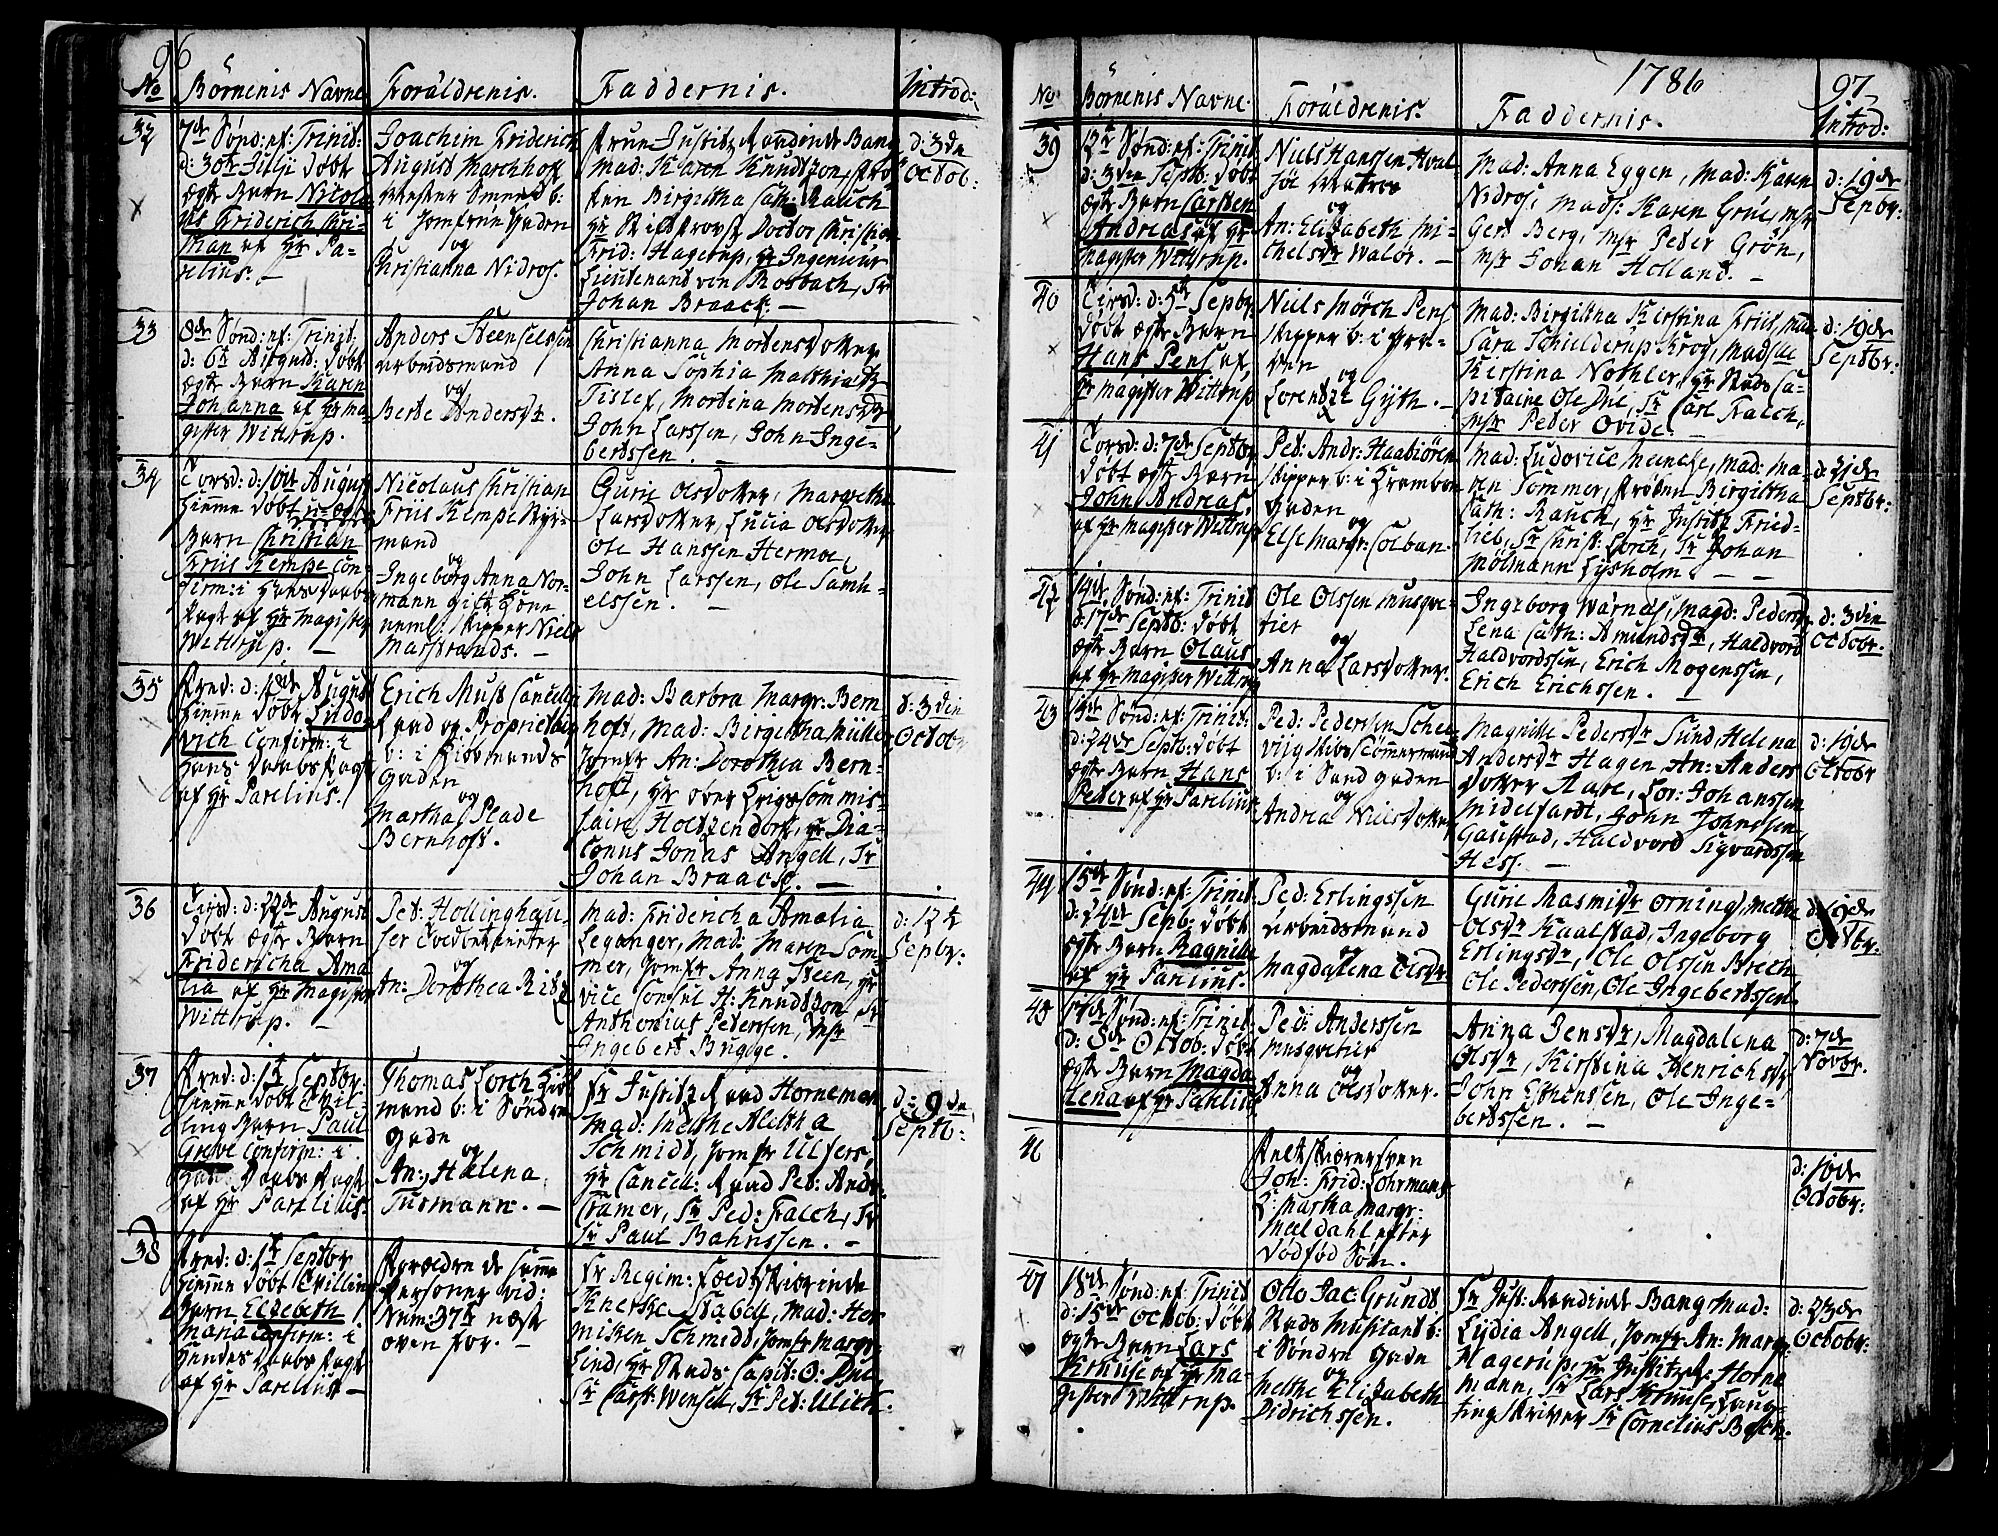 96
No
Börnenis Navne
Forældrenis.
Faddernis.
Introd:
32
7de Sönd: ef: Trinit:
d: 30te Julji döbt
ægte Barn Nicola-
us Friderich Chri-
stian af Hr Pa-
relius. —
Joachim Friderich
August Marchhoff
Mester Smed b:
i Jomfrue Gaden
og
Christianna Nidros.
Frue Justitz Raadinde Bang
Mad: Karen Knudtzon, Frö-
ken Birgittha Cath: Rauch
Hr Stiftsprovst Doctor Christian
Frid: Hagerup, Hr Ingenieur
Lieutenand von Rosbach, Sr
Johan Braack. —
d: 3die
Octob:
33
8de Sönd: ef: Trinit:
d: 6te August: döbt
ægte Barn Karen
Johanna af Hr Ma-
gister Wittrup.
Anders Steenselssen
arbeidsmand
og
Berte Andersdr.
Christianna Mortensdotter
Anna Sophia Matthiædr
Tislef, Mortina Mortensdr
John Larssen, John Inge-
bertssen. —
34
Torsd: d: 10de August
hiemme döbt u-ægte
Barn Christian
Friis Kempe Con-
firm: i Hans Daabs
Pagt af Hr Magister
Wittrup. —
Nicolaus Christian
Friis Kempe Styr-
mand
og
Ingeborg Anna Nor-
mann gift Kone
neml: Skipper Niels
Marstrands. —
Gurie Olsdotter, Margretha
Larsdotter, Lucia Olsdotter
Ole Hanssen Hermoe,
John Larssen, Ole Samu-
elssen. —
35
hiemme döbt Ludo-
vich Confirm: i
Hans Daabs Pagt
af Hr Parelius.
Erich Must Cancellie
Raad og Proprietair
b: i Kiöbmands
Gaden
og
Martha Plade
Bernhoft.
Mad: Barbra Margr: Bern-
hoft, Mad: Birgittha Müller
Jomfr An: Dorothea Bern-
hoft, Hr over Krigscommis-
saire Holtzendorf, Hr Dia-
conus Jonas Angell, Sr
Johan Braack. —
d: 3die
Octobr
36
Tirsd: d: 22de August
döbt ægte Barn
Fridericha Ama-
lia af Hr Magister
Wittrup. —
Pet: Hollinghau-
ser Toldbetienter
og
An: Dorothea
Mad: Fridericha Amalia
Leganger, Mad: Maren Som-
mer, Jomfr Anna Steen, Hr
Vice Consul H: Knudtzon Sr
Anthonius Pederssen, Msr
Ingebert Bugge.
d: 12te
Sepbr:
37
Fred: d: 1te Septbr:
hiemme döbt Tvil-
ling Barn Paul
Greve Confirm: i
Hans Daabs Pagt
af Hr Parelius.
Thomas Lorch Kiöb-
mand b: i Söndre
Gade
og
An: Halena
Turmann. —
Fr Justitz Raad Horneman
Mad: Mette Aletha
Schmidt, Jomfr Ulfers,
Hr Cancell: Raad Pet: Andr:
Cramer, Sr Ped: Falch, Sr
Sr Paul Bahnssen. —
d: 9de
Septb:
38
Fred: d: 1te Septbr
hiemme döbt Tvilling
Barn Elsebeth
Maria Confirm: i
Hendes Daabs Pagt
af Hr Parelius —
Forældre de samme
Personer vid:
Num: 37te næst
oven for. —
Fr Regim: Feldtskiærinde
Knerske Stabell, Mad: Her-
misken Schmidt, Jomfr Margr:
Lind, Hr Stads-Capit: O: Due,
Sr Cast: Wensell, Sr Pet: Ulich.
1786
97
No
Börnenis Navne
Forældrenis.
Faddernis.
Introd:
39
12te Sönd: ef: Trinit
d: 3die Septb: döbt
ægte Barn Carsten
Andreas af Hr
Magister Wittrup.
Niels Hanssen Hval-
söe Matros
og
An: Elisabeth Mi-
chelsdr Walör. —
Mad: Anna Eggen, Mad: Karen
Nidros, Mads: Karen Grön, Msr
Gert Berg, Msr Peter Grön,
Msr Johan Holland. —
d: 19de
Sepbr:
40
Tirsd: d: 5te Sepbr
döbt ægte Barn
Hans Pens af
Hr Magister Wittrup
Niels Mörch Pens
Skipper b: i
og
Lorentze Gyth. —
Mad: Birgittha Kirstina Friis, Mad:
Sara Schielderup Krog, Madse
Kirstina Nothler, Hr Stads Ca-
pitaine Ole Due, Sr Carl Falch,
Msr Peter Ovide.
d: 19de
Septbr:
41
Torsd: d: 7de Septbr
döbt ægte Barn
John Andreas,
af Hr Magister Wittrup
Pet: Andr: Haabiören
Skipper b: i Krambod
Gaden
og
Else Margr: Colban.
Mad: Ludovice Meincke, Mad: Ma-
ren Sommer, Fröken Birgittha
Cath: Rauch, Hr Justitzr Fried-
lieb, Sr Christ: Lorch, Sr Johan
Möllmann Lysholm. —
d: 21de
Septbr:
42
14de Sönd: ef: Trinit
d: 17de Septb: döbt
ægte Barn Olaus
af Hr Magister Wittrup
Ole Olssen Musqve-
tier
og
Anna Larsdotter.
Ingeborg Wärnes, Magd: Pedersdr
Lena Cath: Amundsdr, Haldvord
Haldvordssen, Erich Mogenssen,
Erich Erichssen. —
d: 3die
Octobr.
43
15de Sönd: ef: Trinit:
d: 24de Septb: döbt
ægte Barn Hans
Peter af Hr Parelius
Ped: Pederssen
Skibs Tömmermand
b: i Sand gaden
og
Andrea Nielsdotter
Magnille Pedersdr Sund, Helena
Andersdr Hagen, An: Anders
dotter Aare, Lor: Johanssen
Midelfardt, John Johnssen
Gaustad, Haldvord Sigvardssen
Hess. —
d: 19de
Octobr
44
15de Sönd: ef: Trinit:
d: 24de Sepb: döbt
ægte Barn Ragnille
af Hr Parelius.
Ped: Erlingssen
arbeidsmand
og
Magdalena Olsdr
Gurie Rasmisdr Orning, Mette
Olsdr Kaalstad, Ingeborg
Erlingsdr, Ole Olssen Brech
Ole Pederssen, Ole Ingebertssen.
d: 19de
Octbr:
45
17de Sönd: ef: Trinit:
d: 8de Octob: döbt
ægte Barn Magda-
lena af Hr Parelius
Ped: Anderssen
Musqvetier
og
Anna Olsdotter.
Anna Jensdr, Magdalena
Olsdr, Kirstina Henrichsdr
John Estenssen, Ole Inge-
bertssen. —
d: 7de
Novbr.
46
Feltskiærersven
Joh: Frid: Lohrmans
K: Martha Margr:
Meldahl efter
dödföd Sön.
d: 10de
Octobr:
47
18de Sönd: ef: Trinit
d: 15de Octob: döbt
ægte Barn Lars
Kruuse af Hr Ma-
gister Wittrup.
Otto Jac: Grundt
Stads Musicant b:
i Söndre Gade
og
Mette Elisabeth
Didrichssen.
Fr Just: Raadinde Bang Mad:
Lydia Angell, Jomfr An: Margr
Hagerup, Hr Justitzr Horne-
mann, Sr Lars Kruuse, Laug-
tingskriver Sr Cornelius Basch.
d: 23de
Octobr: